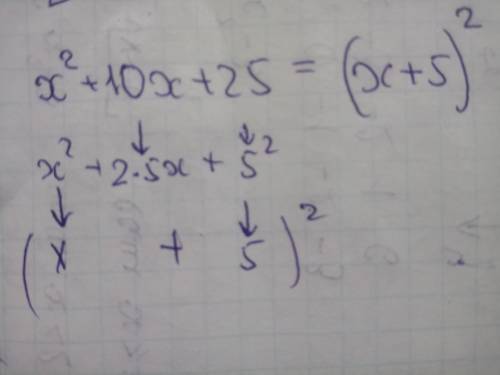 x² + 10x + 25 = (x + 5)²
↓ ↓
x² + 2·5x + 5²
↓ ↓
(x + 5)²